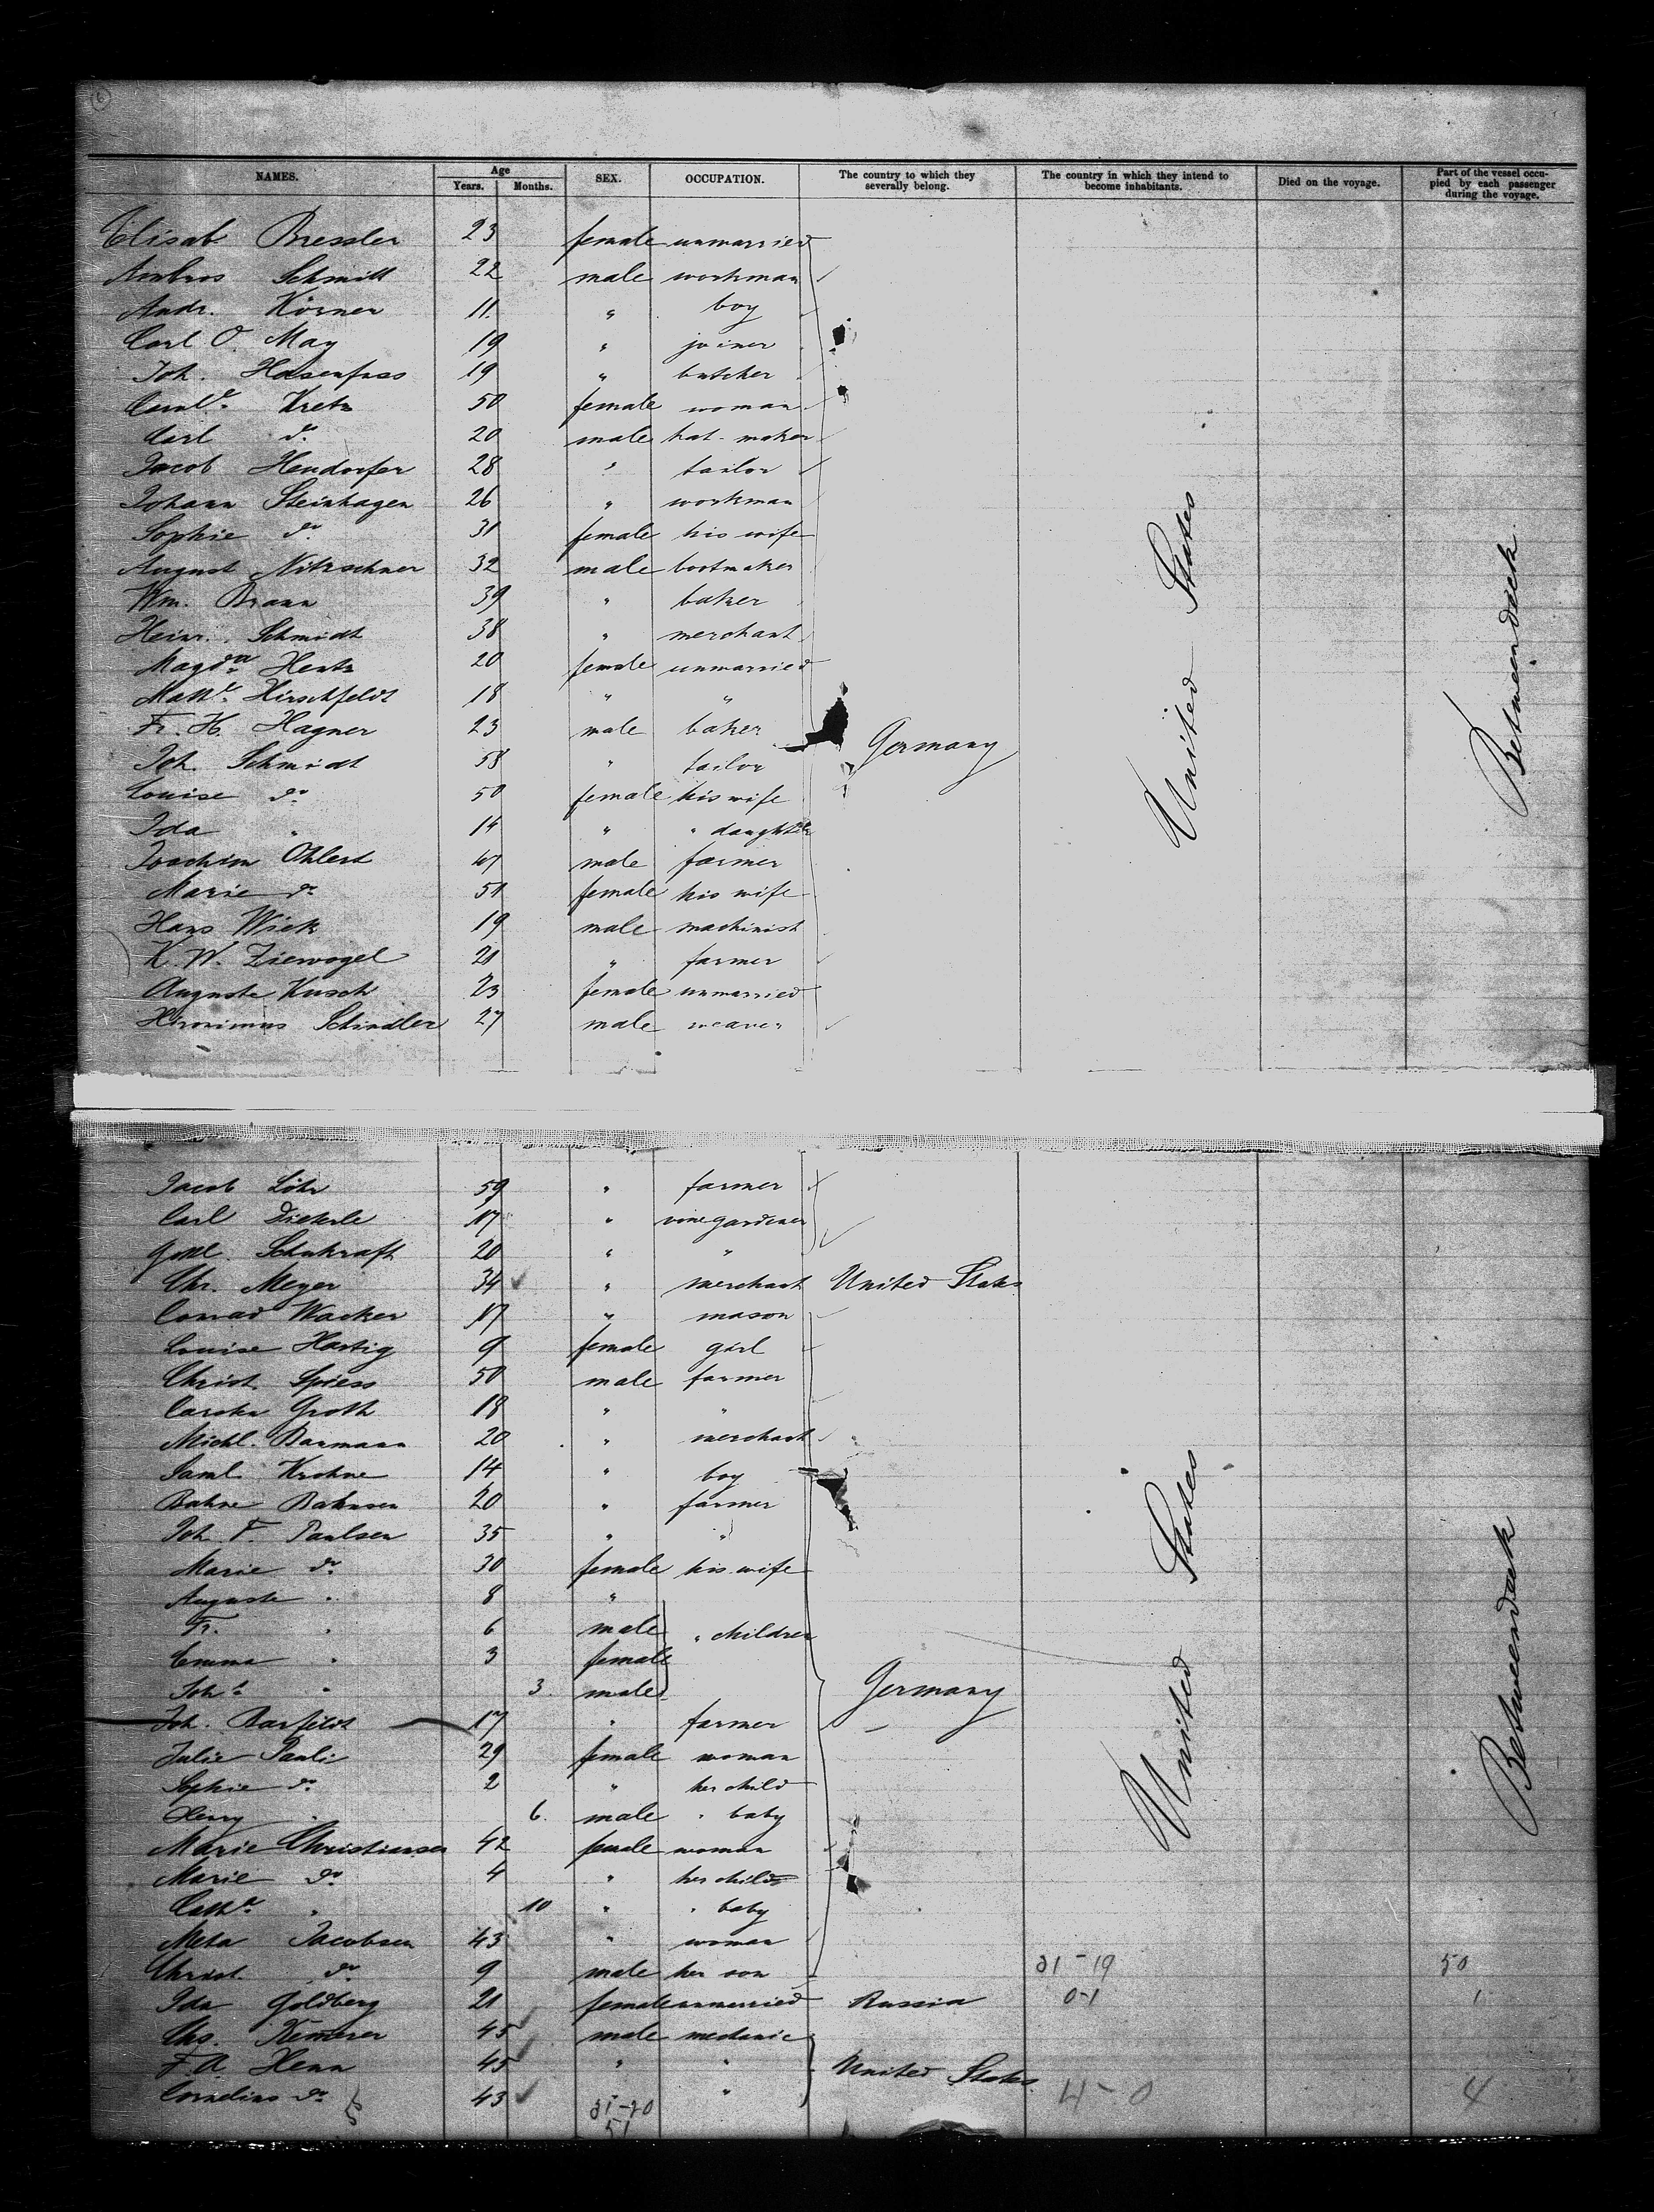 6
NAMES. Age Years. Months. SEX. OCCUPATION. The country to which they severally belong. The country in which they intend to become inhabitants. Died on the voyage. Part of the vessel occupied by each passenger during the voyage.
Elisab Bressler 23 female unmarried
Ambros Schmitt 22 male workman
Andr. Körner 11 " boy
Carl O. May 19 " joiner
Joh. Hasenfuss 19 " butcher
Kretz 50 female woman
Carl do 20 male hat-maker
Jacob Hendorfer 28 " tailor
Johann Steinhagen 26 " workman
Sophie do 31 female his wife
August Nitzschner 32 male bootmaker
Wm. Braun 39 " baker
Heinr. Schmidt 38 " merchant
Magda Hentz 20 female unmarried
Mathe Hirschfeldt 18 " "
Fr. H. Hagner 23 male baker Germany United States Betweendeck
Joh. Schmidt 58 " tailor
Louise do 50 female his wife
Ida " 14 " " daughter
Joachim Ohlert 47 male farmer
Marie do 51 female his wife
Hans Wick 19 male machinist
K. W. Ziervogel 21 " farmer
Auguste Kusch 23 female unmarried
Hironimus Schindler 27 male weaver
Jacob Löhr 59 " farmer
Carl Dieterle 17 " vinegardener
Gottl. Schukraft 20 " "
Chr. Meyer 34 " merchant United States
Conrad Wacker 17 " mason
Louise Hartig 9 female girl
Christ. Spiess 50 male farmer
Carsten Groth 18 " "
Michl. Baumann 20 " merchant
Saml. Krohne 14 " boy
Bahne Bahnsen 20 " farmer
Joh. F. Paulsen 35 " "
Marie do 30 female his wife
Auguste " 8 "
Fr. " 6 male " children
Emma " 3 female
Joh. " 3 male Germany United States Betweendeck
Joh. Barfeldt 17 " farmer
Julie Pauli 29 female woman
Sophie do 2 " her child
Henry " 6 male " baby
Marie Christiansen 42 female woman
Marie do 4 " her child
Cathe " 10 " " baby
Meta Jacobsen 43 " woman
Christ. do 9 male her son 31-19 50
Ida Goldberg 21 female unmarried Russia 0-1 1
Chs. Kemerer 45 male mechanic
F. A. Henn 45 " " United States
Cornelius do 43 " " 4-0 4
31-20
51